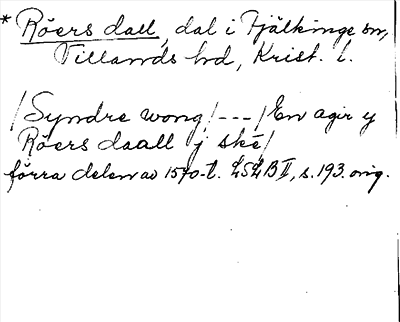 * Röers dall, dal i Fjälkinge sn,
Villands hd, Krist. l.
/Syndre wong/---/En agir y
Röers daall j ske/
förra delen av 1570-t. LSLB II, s. 193. orig.